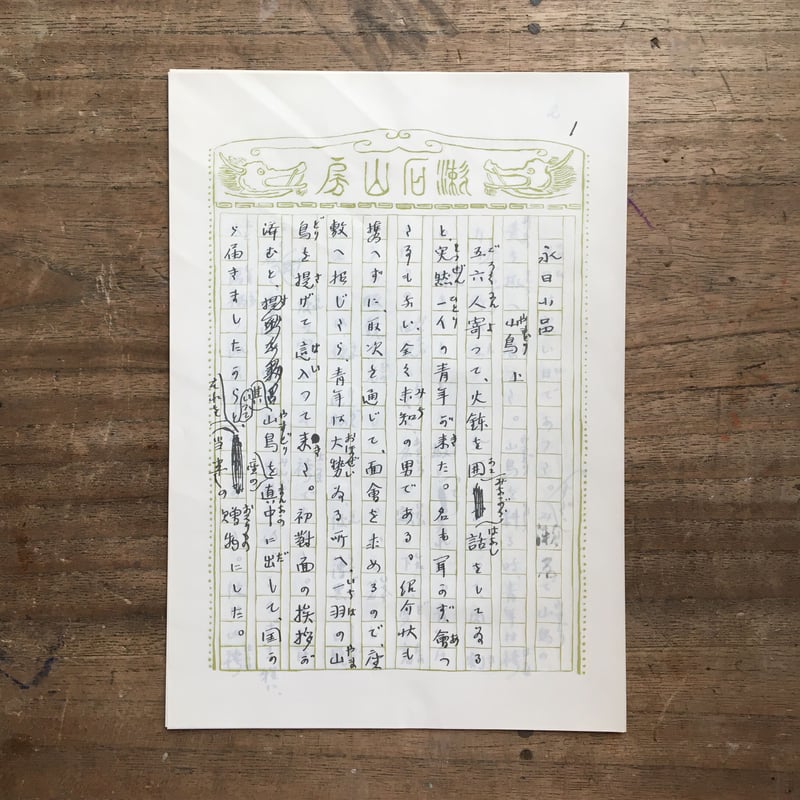 1
漱石山房
永日小品　漱石
山鳥　上
五六人寄つて、火鉢を囲みながら話をしてゐる
と、突然一人の青年が来た。名も聞かず、會つ
た事もない全く未知の男である。紹介状も
携へずに、取次を通じて、面會を求めるので、座
敷へ招じたら、青年は大勢ゐる所へ、一羽の山
鳥を提げて這入つて来た。初對面の挨拶が
済むと、其山鳥を座の真中に出して、国か
ら届きましたからと云つてそれを当座の贈物にした。